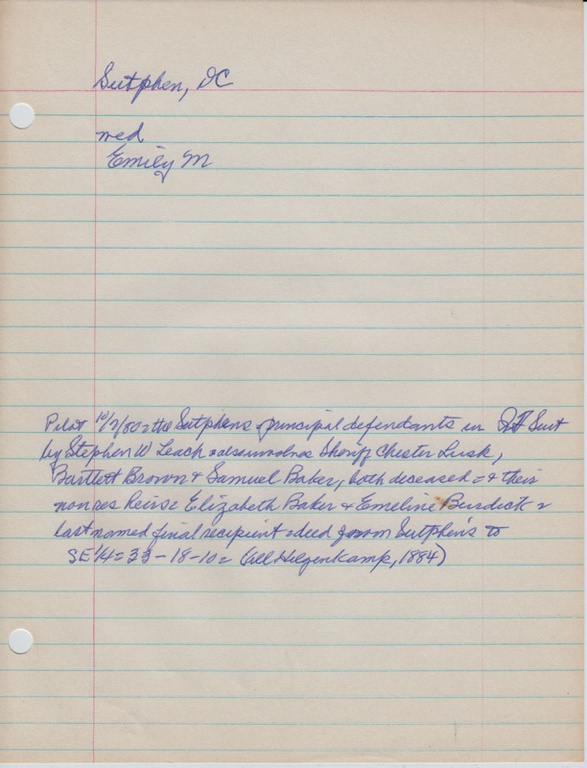 Sutphen, DC
wed
Emily M
Pilot 10/2/80 = the Sutphens principal defendants in Suit
by Stephen W Leach also involves Sheriff Chester Lusk,
Bartlett Brown + Samuel Baker, both deceased = + their
non res Heirs = Elizabeth Baker + Emeline Burdick =
last named final recipient = deed from Sutphen's to
SE 1/4 = 33-18-10 = (Hilgenkamp, 1884)